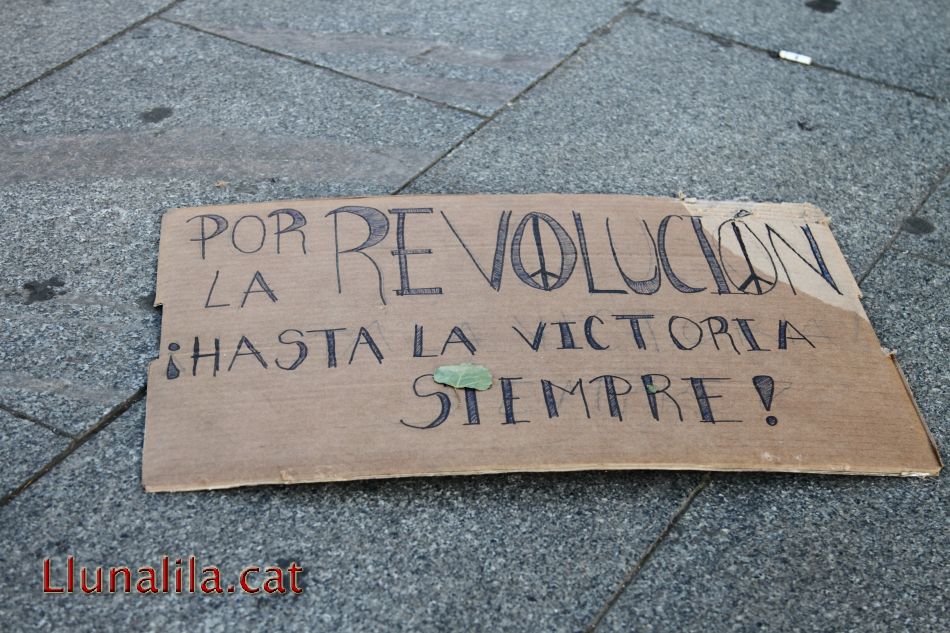 POR LA REVOLUCIÓN
¡HASTA LA VICTORIA
SIEMPRE!
Llunalila.cat